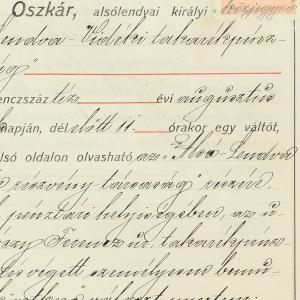 Oszkár, alsólendyai királyi közjegyző
Lendva-Vidéki takarékpénz-
ság"
enczszáz tiz évi augusztus
napján, dél előtt 11. órakor egy váltót,
lsó oldalon olvasható az "Alsó-Lendva
részvény-társaság" részére,
pénztári helyiségében, az ú-
Ferencz úr, takarékpénz-
végett személyesen bemu-